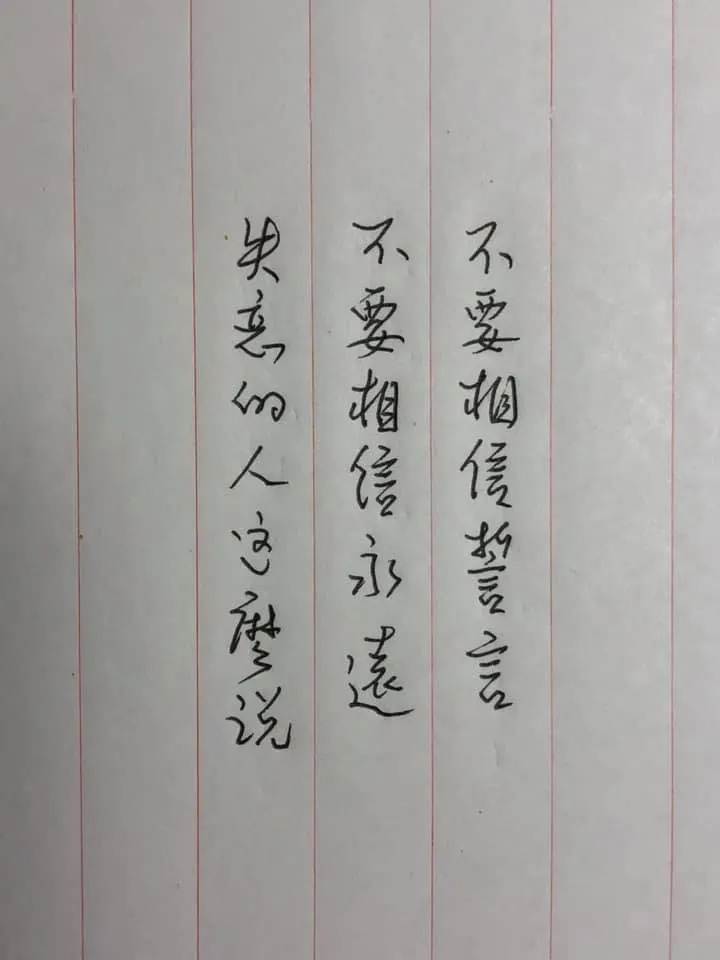 不要相信誓言
不要相信永遠
失意的人这麼说